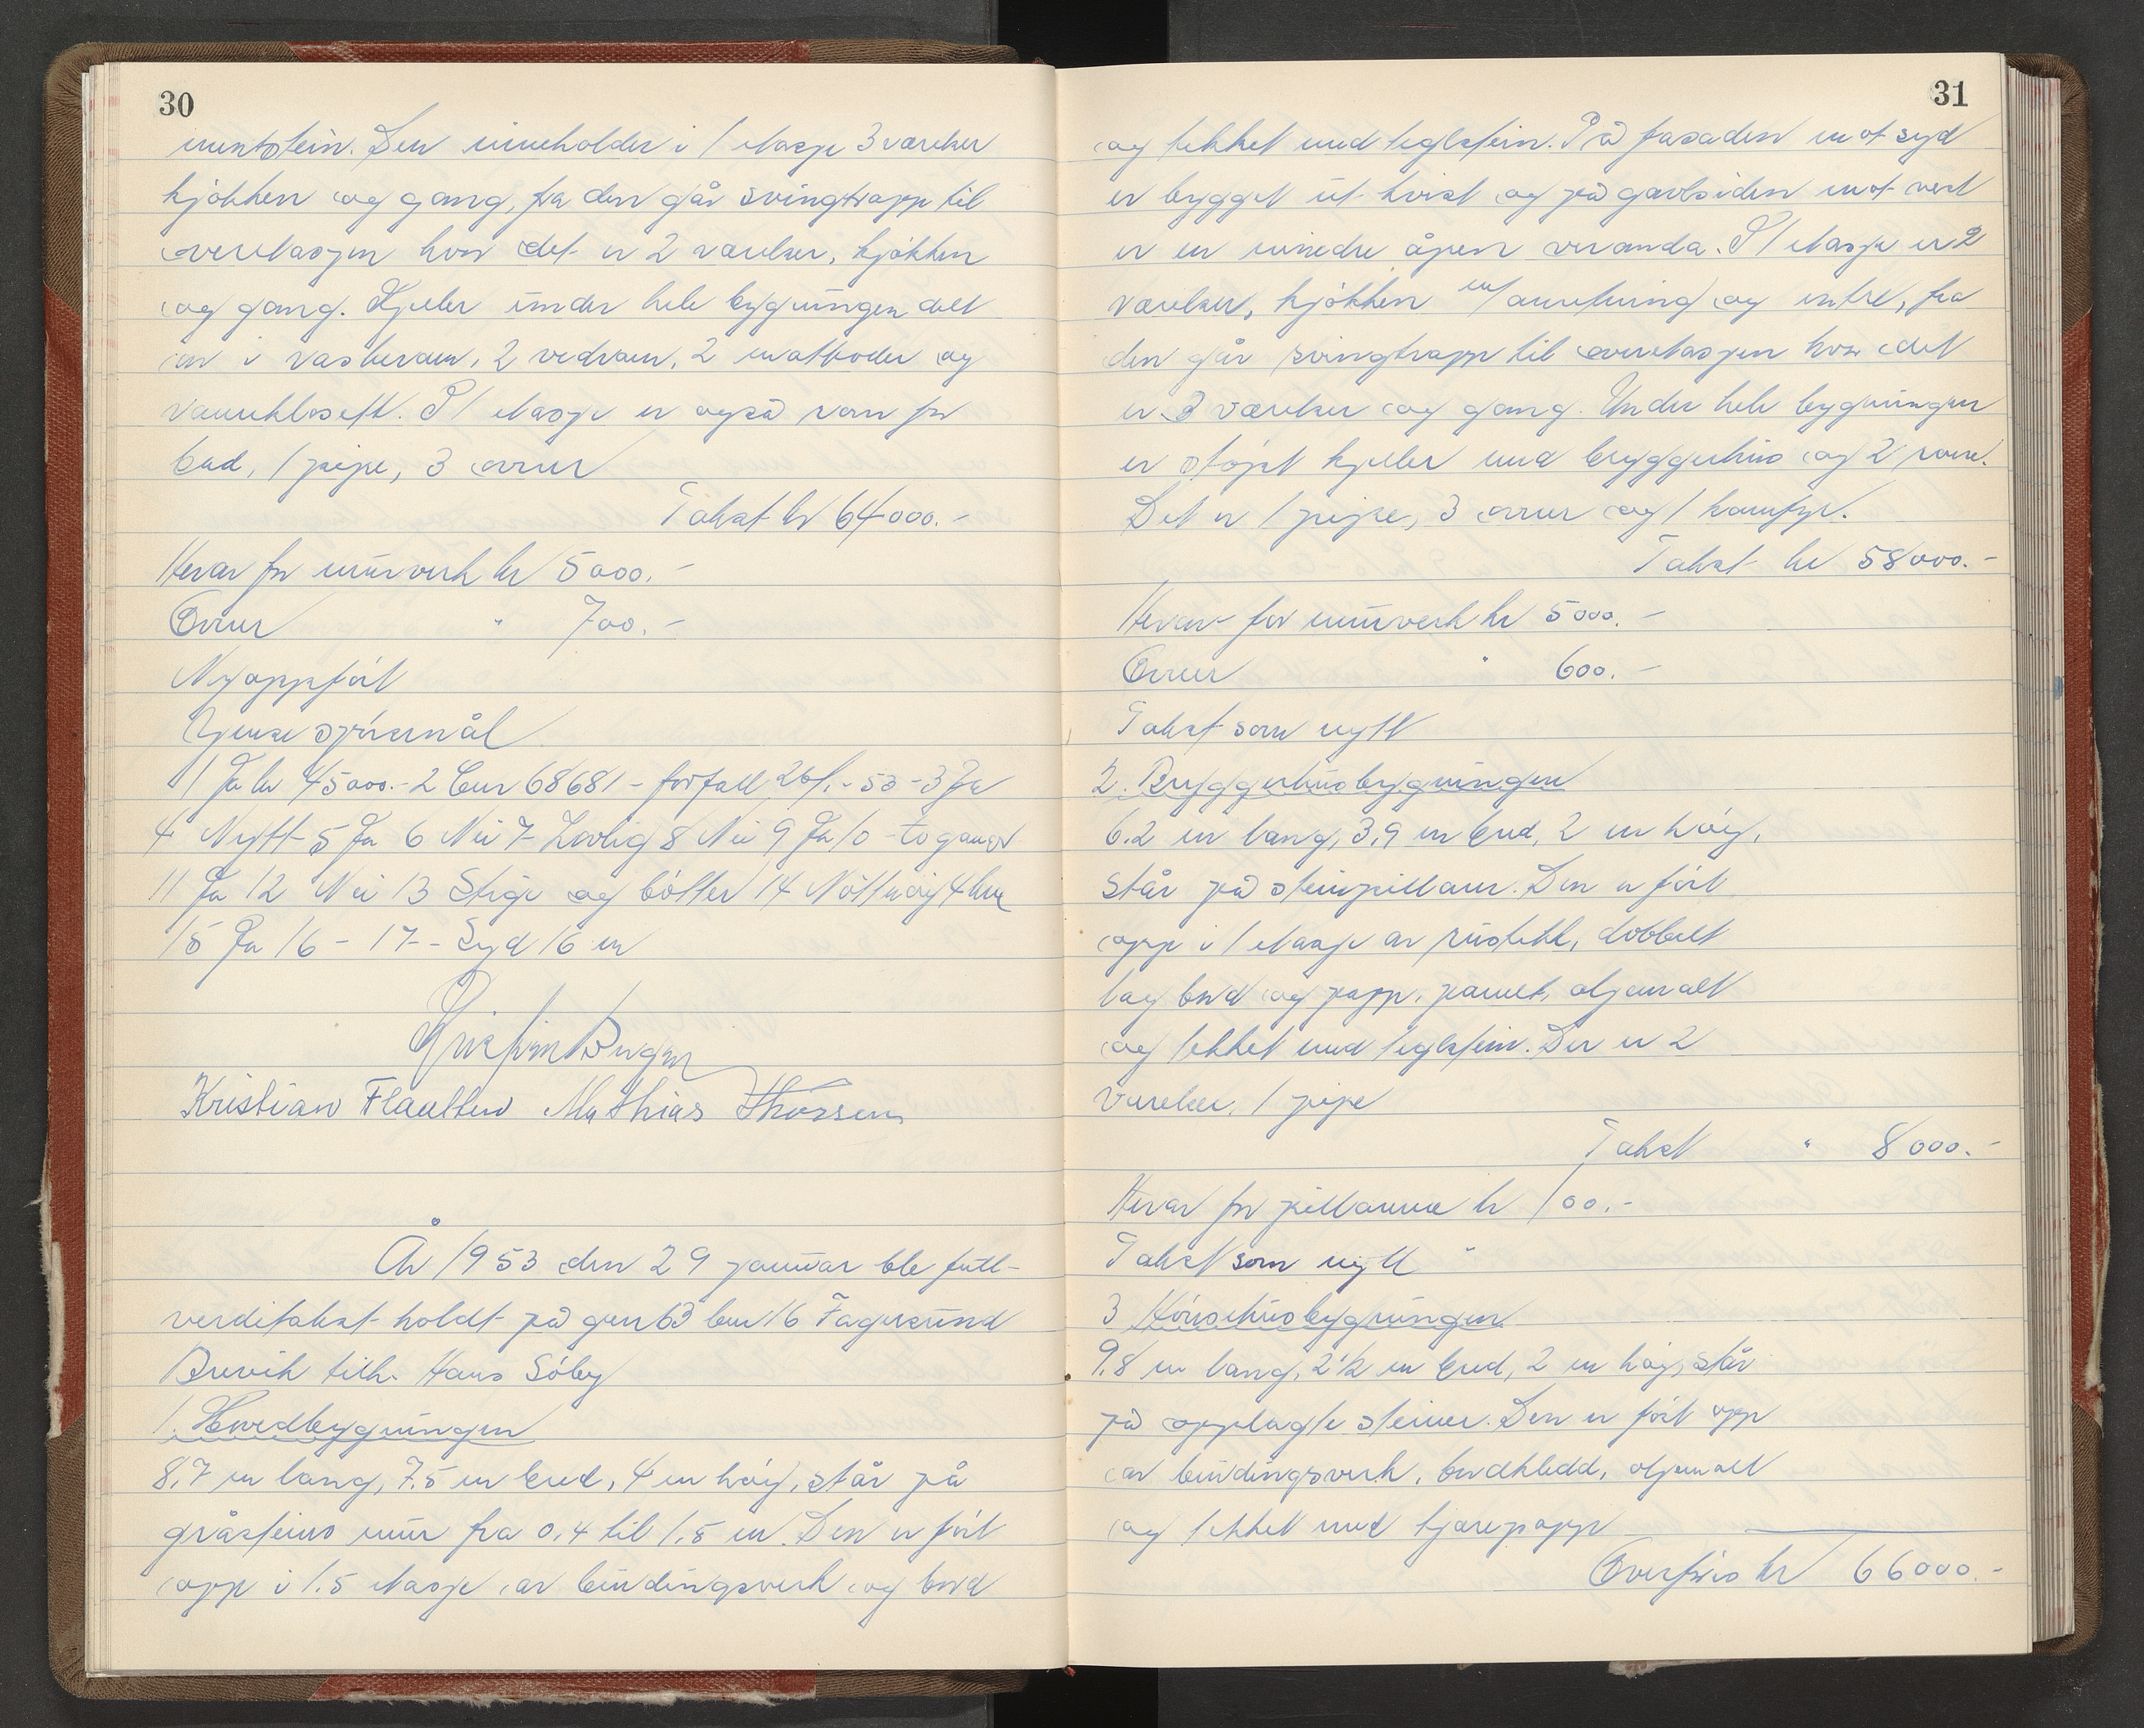 30
mentstein. Den inneholder i 1 etasje 3 værelser
kjøkken og gang, fra den går svingtrapp til
overetasjen hvor det er 2 værelser, kjøkken
og gang. Kjeller under hele bygningen delt
inn i vaskerum, 2 vedrum, 2 matboder og
vannklosett. I 1 etasje er også rom for
bad, 1 pipe, 3 ovner
Takst kr 64000.-
Herav for murverk kr 5000.-
Ovner " 700.-
Nyoppført
Gjense spörsmål
1 Ja kr 45000.- 2 Cur 68681 - forfall 20/1 - 53 - 3 Ja
4 Nytt 5 Ja 6 Nei 7 Lovlig 8 Nei 9 Ja 10 - to ganger
11 Ja 12 Nei 13 Stige og bötter 14 Nötterøy 4 km
15 Ja 16 - 17 - Syd 16 m
Kristian Flaatten Mathias Thorssen
År 1953 den 29 januar ble full-
verditakst holdt på gnr 63 bnr 16 Fagersund
Brevik tilh. Hans Söby
1. Hovedbygningen
8,7 m lang, 7.5 m bred, 4 m höy, står på
gråsteins mur fra 0,4 til 1,5 m. Den er fört
opp i 1.5 etasje av bindingsverk og bord
31
og tekket med teglstein. På fasaden mot syd
er bygget ut kvist og på gavlsiden mot vest
er en mindre åpen veranda. I 1 etasje er 2
værelser, kjökken m/ anretning og entre, fra
den går svingtrapp til overetasjen hvor det
er 3 værelser og gang. Under hele bygningen
er støpt kjeller med bryggerhus og 2 rom.
Det er 1 pipe, 3 ovner og 1 komfyr.
Takst kr 58000.-
Herav for murverk kr 5000.-
Ovner " 600.-
Takst som nytt
2. Bryggerhusbygningen
6.2 m lang, 3,9 m bred, 2 m höy,
står på steinpillarer. Den er fört
opp i 1 etasje av rustekk, dobbelt
lag bord og papp, panelt, oljemalt
og tekket med teglstein. Der er 2
værelser, 1 pipe
Takst " 8000.-
Herav for pillarene kr 100.-
Takst som nytt
3 Hönsehusbygningen
9.8 m lang, 2 1/2 m bred, 2 m höy, står
på opplagte steiner. Den er fört opp
av bindingsverk, bordkledd, oljemalt
og tekket med tjærepapp
Overføres kr 66000.-